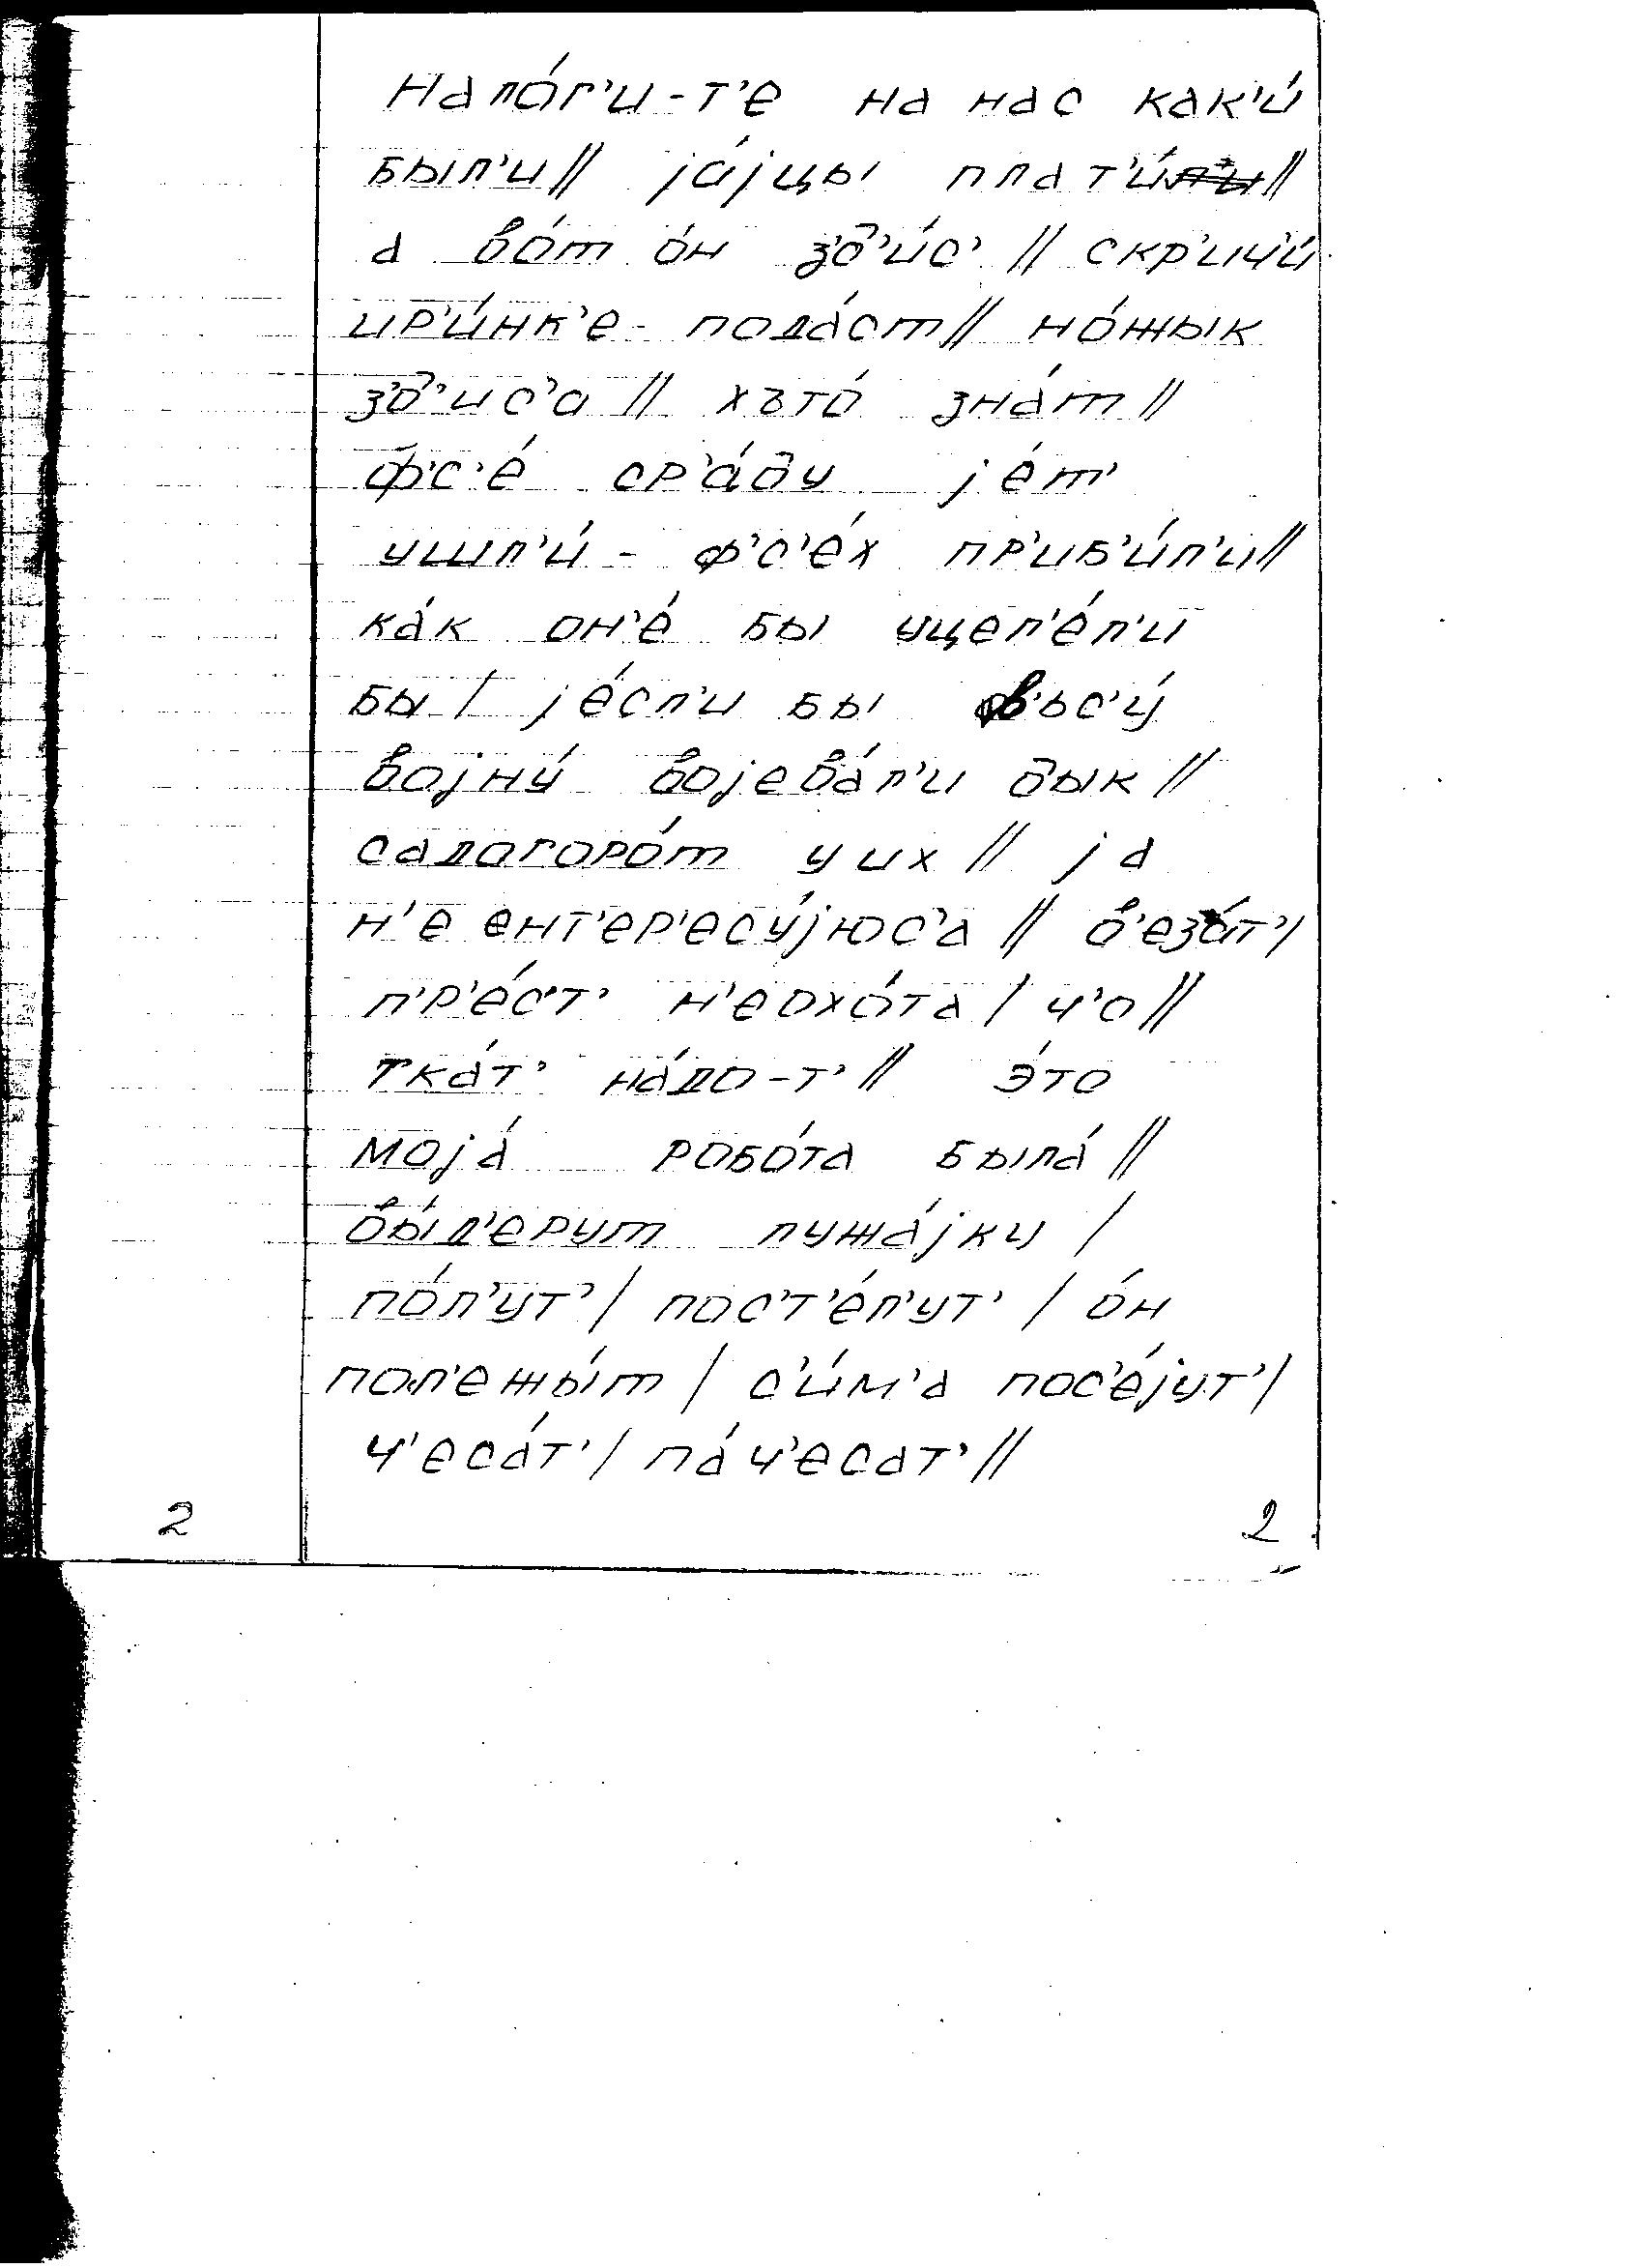 нало́г'и-т'е на нас как'и́
был'и // jа́jцы плат'и́ //
а во́т о́н зд'и́с' // скр'ич'и́
ир'и́нк'е - пода́ст // но́жык
зд'ис'а // хъто́ зна́т //
ф'с'е́ ср'а́ду jе́т'
ушл'и́ - ф'с'е́х пр'иб'и́л'и //
ка́к он'е́ бы уцел'е́л'и
бы / jе́сл'и бы в'ьс'у́
воjну́ воjева́л'и дык //
садогоро́т у их // jа
н'е ент'ер'есу́jюс'а // в'еза́т' /
пр'е́с'т' н'еохо́та / ч'о //
тка́т' на́до-т' // э́то
моjа́ робо́та была́ //
вы́д'ерут лужа́jку /
по́л'ут' / пос'т'е́л'ут' / о́н
пол'ежы́т / с'и́м'а пос'е́jут' /
ч'еса́т' / па́ч'есат' //
2
2